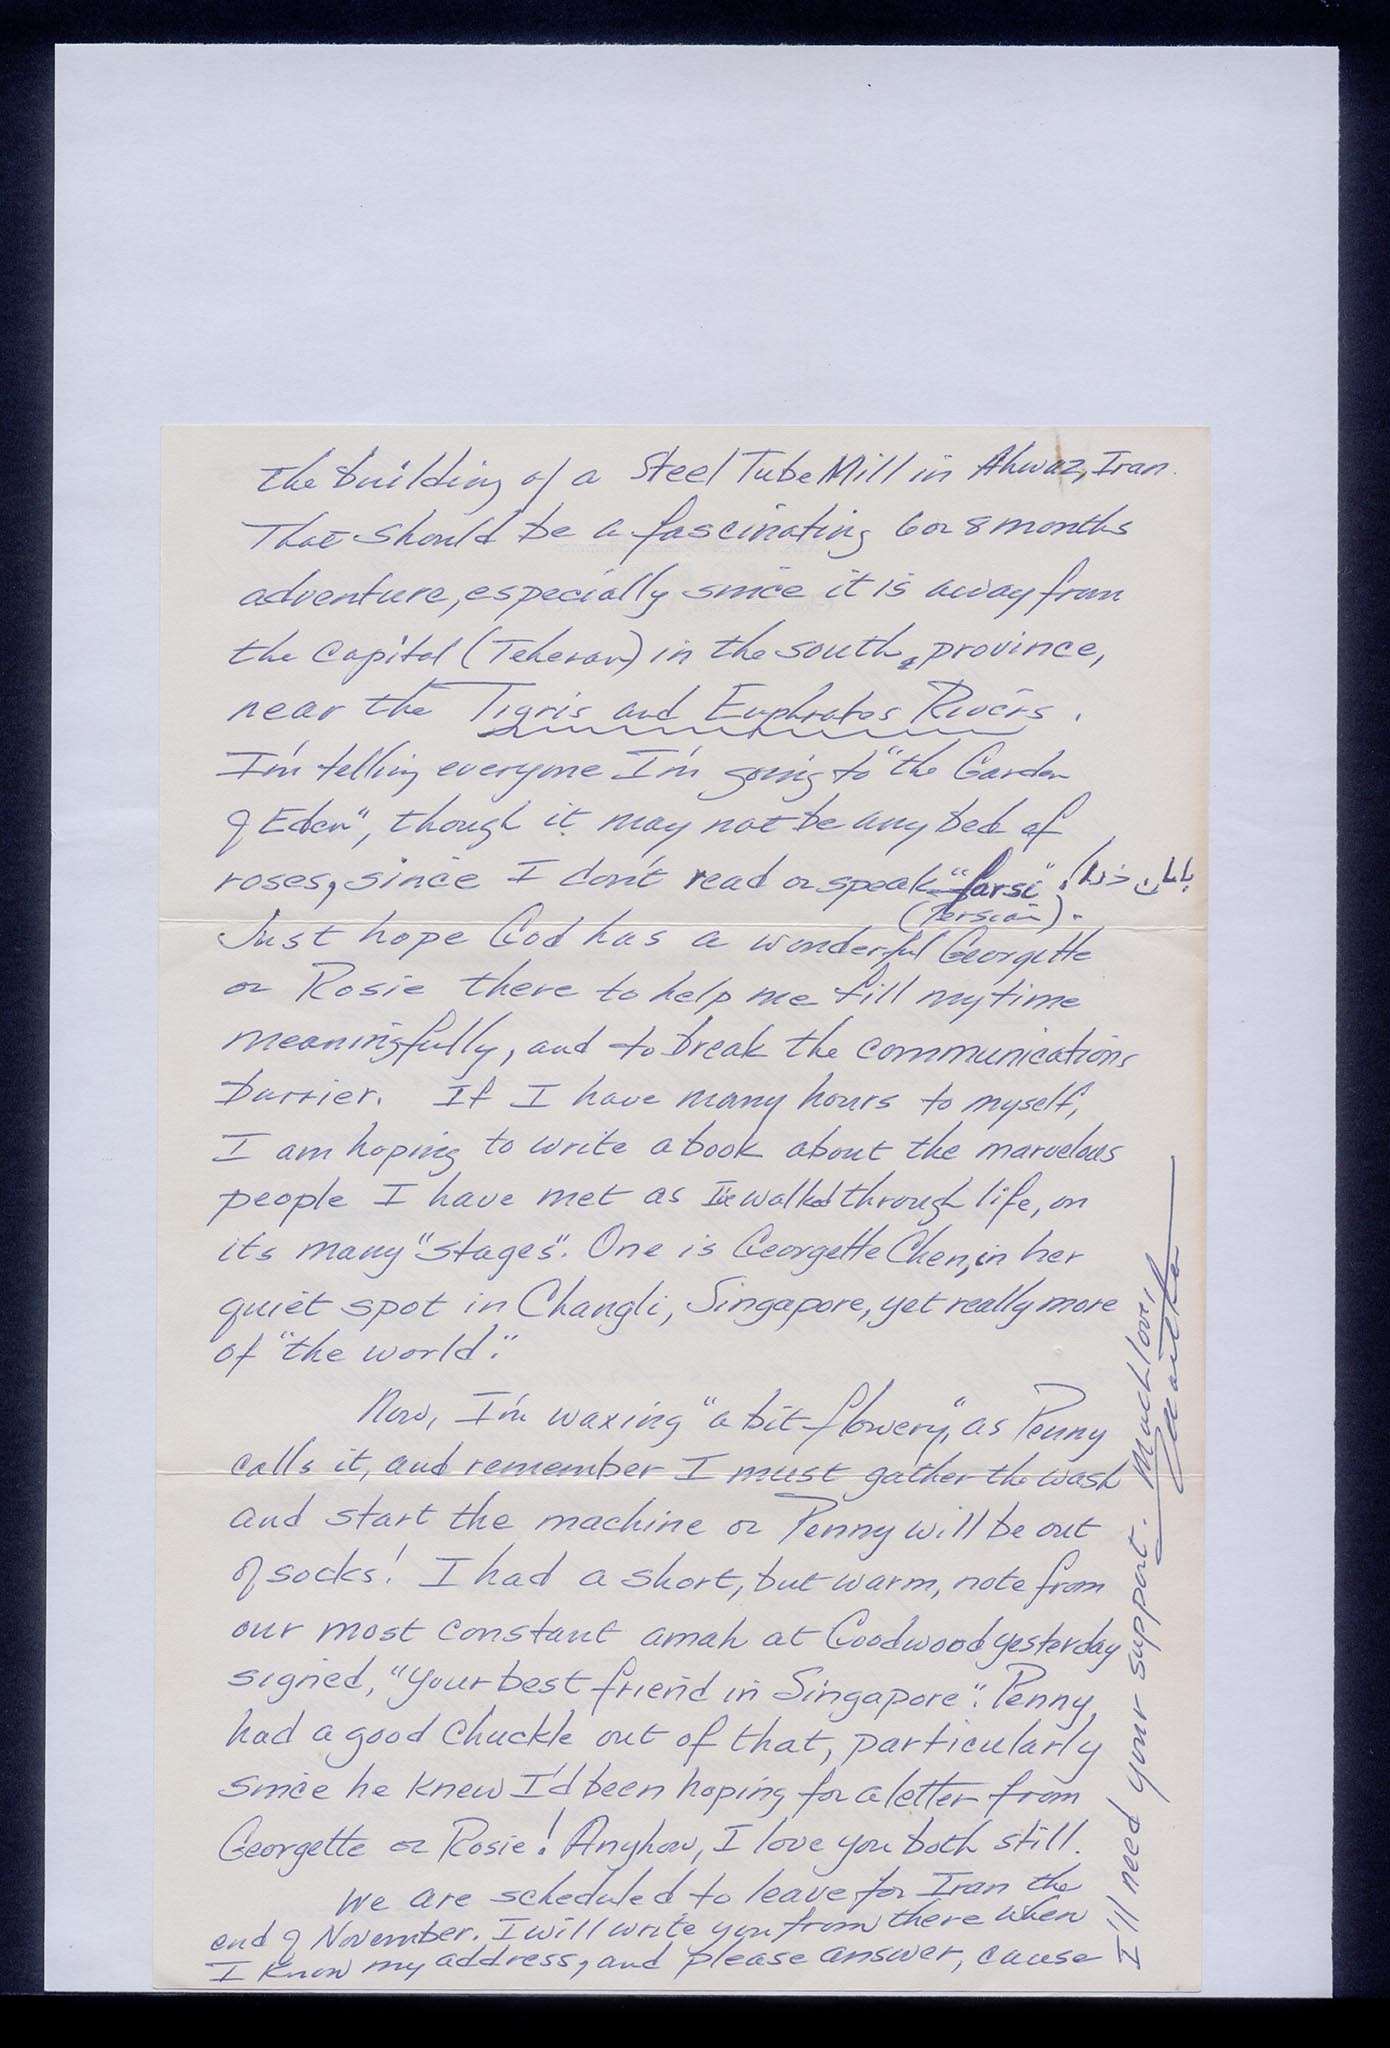 the building of a Steel Tube Mill in Ahwaz, Iran.
That should be a fascinating 6 or 8 months
adventure, especially since it is away from
the Capitol (Teheran) in the south province,
near the Tigris and Euphrates Rivers.
I'm telling everyone I'm going to "the Garden
of Eden", though it may not be any bed of
roses, since I don't read or speak "farsi"!
(Persian).
Just hope God has a wonderful Georgette
or Rosie there to help me fill my time
meaningfully, and to break the communications
barrier. If I have many hours to myself,
I am hoping to write a book about the marvelous
people I have met as I've walked through life, on
its many "stages". One is Georgette Chen, in her
quiet spot in Changli, Singapore, yet really more
of "the world."
Now, I'm waxing "a bit flowery," as Penny
calls it, and remember I must gather the wash
and start the machine or Penny will be out
of socks! I had a short, but warm, note from
our most constant amah at Goodwood yesterday
signed, "Your best friend in Singapore". Penny
had a good chuckle out of that, particularly
since he knew I'd been hoping for a letter from
Georgette or Rosie! Anyhow, I love you both still.
We are scheduled to leave for Iran the
end of November. I will write you from there when
I know my address, and please answer, cause
I'll need your support. Much love,